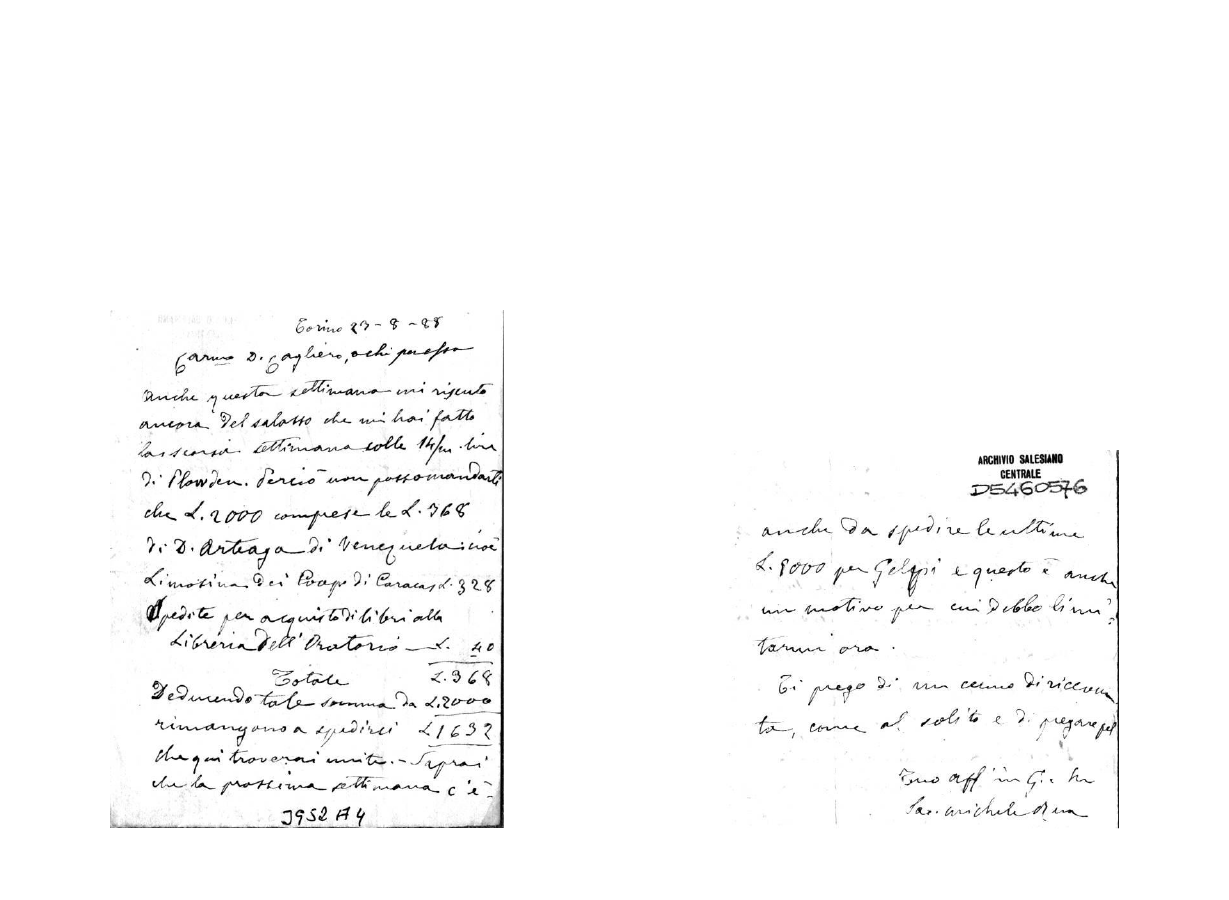 Torino 23-8-88
Carmo D. Cagliero, o chi per esso
Anche questa settimana mi risento
ancora del salasso che mi hai fatto
la scorsa settimana colle 14/m. lire
di Plowden. Perciò non posso mandarti
che L. 2000 comprese le L. 368
di D. Arteaga di Venezuela cioè
Limosina dei Coop. di Caracas L. 328
Spedite per acquisto di libri alla
Libreria dell'Oratorio — L. 40
Totale L. 368
Deducendo tale somma da L. 2000
rimangono a spedirsi L 1632
che qui troverai unite. - Saprai
che la prossima settimana c'è
3952 A 4
ARCHIVIO SALESIANO
CENTRALE
D5460576
anche da spedire le ultime
L. 9000 per e questo è anche
un motivo per cui debbo limi-
tarmi ora.
Ti prego di un cenno di ricevu
ta, come al solito e di pregare pel
Tuo aff in G. e M
Sac. Michele Rua